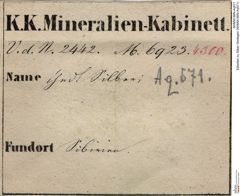 K.K. Mineralien-Kabinett.
V. d. N. 2442. M. 6923. 4300.
Name Ged. Silber. Ag. 571.
Fundort Sibirien.